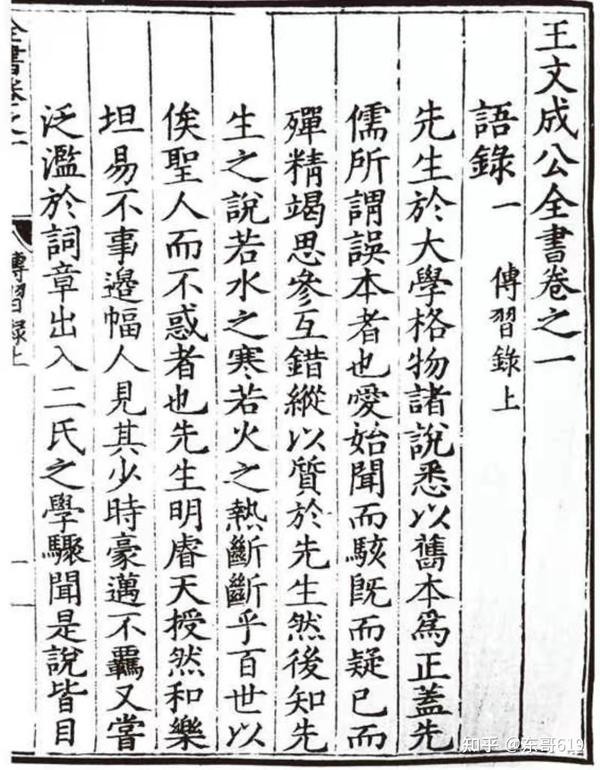 王文成公全書卷之一
語錄一 傳習錄上
先生於大學格物諸說悉以舊本爲正蓋先
儒所謂誤本者也愛始聞而駭旣而疑已而
殫精竭思參互錯縱以質於先生然後知先
生之說若水之寒若火之熱斷斷乎百世以
俟聖人而不惑者也先生明睿天授然和樂
坦易不事邊幅人見其少時豪邁不羈又嘗
泛濫於詞章出入二氏之學驟聞是說皆目
全書卷之一
傳習錄上
一
知乎 @东哥619